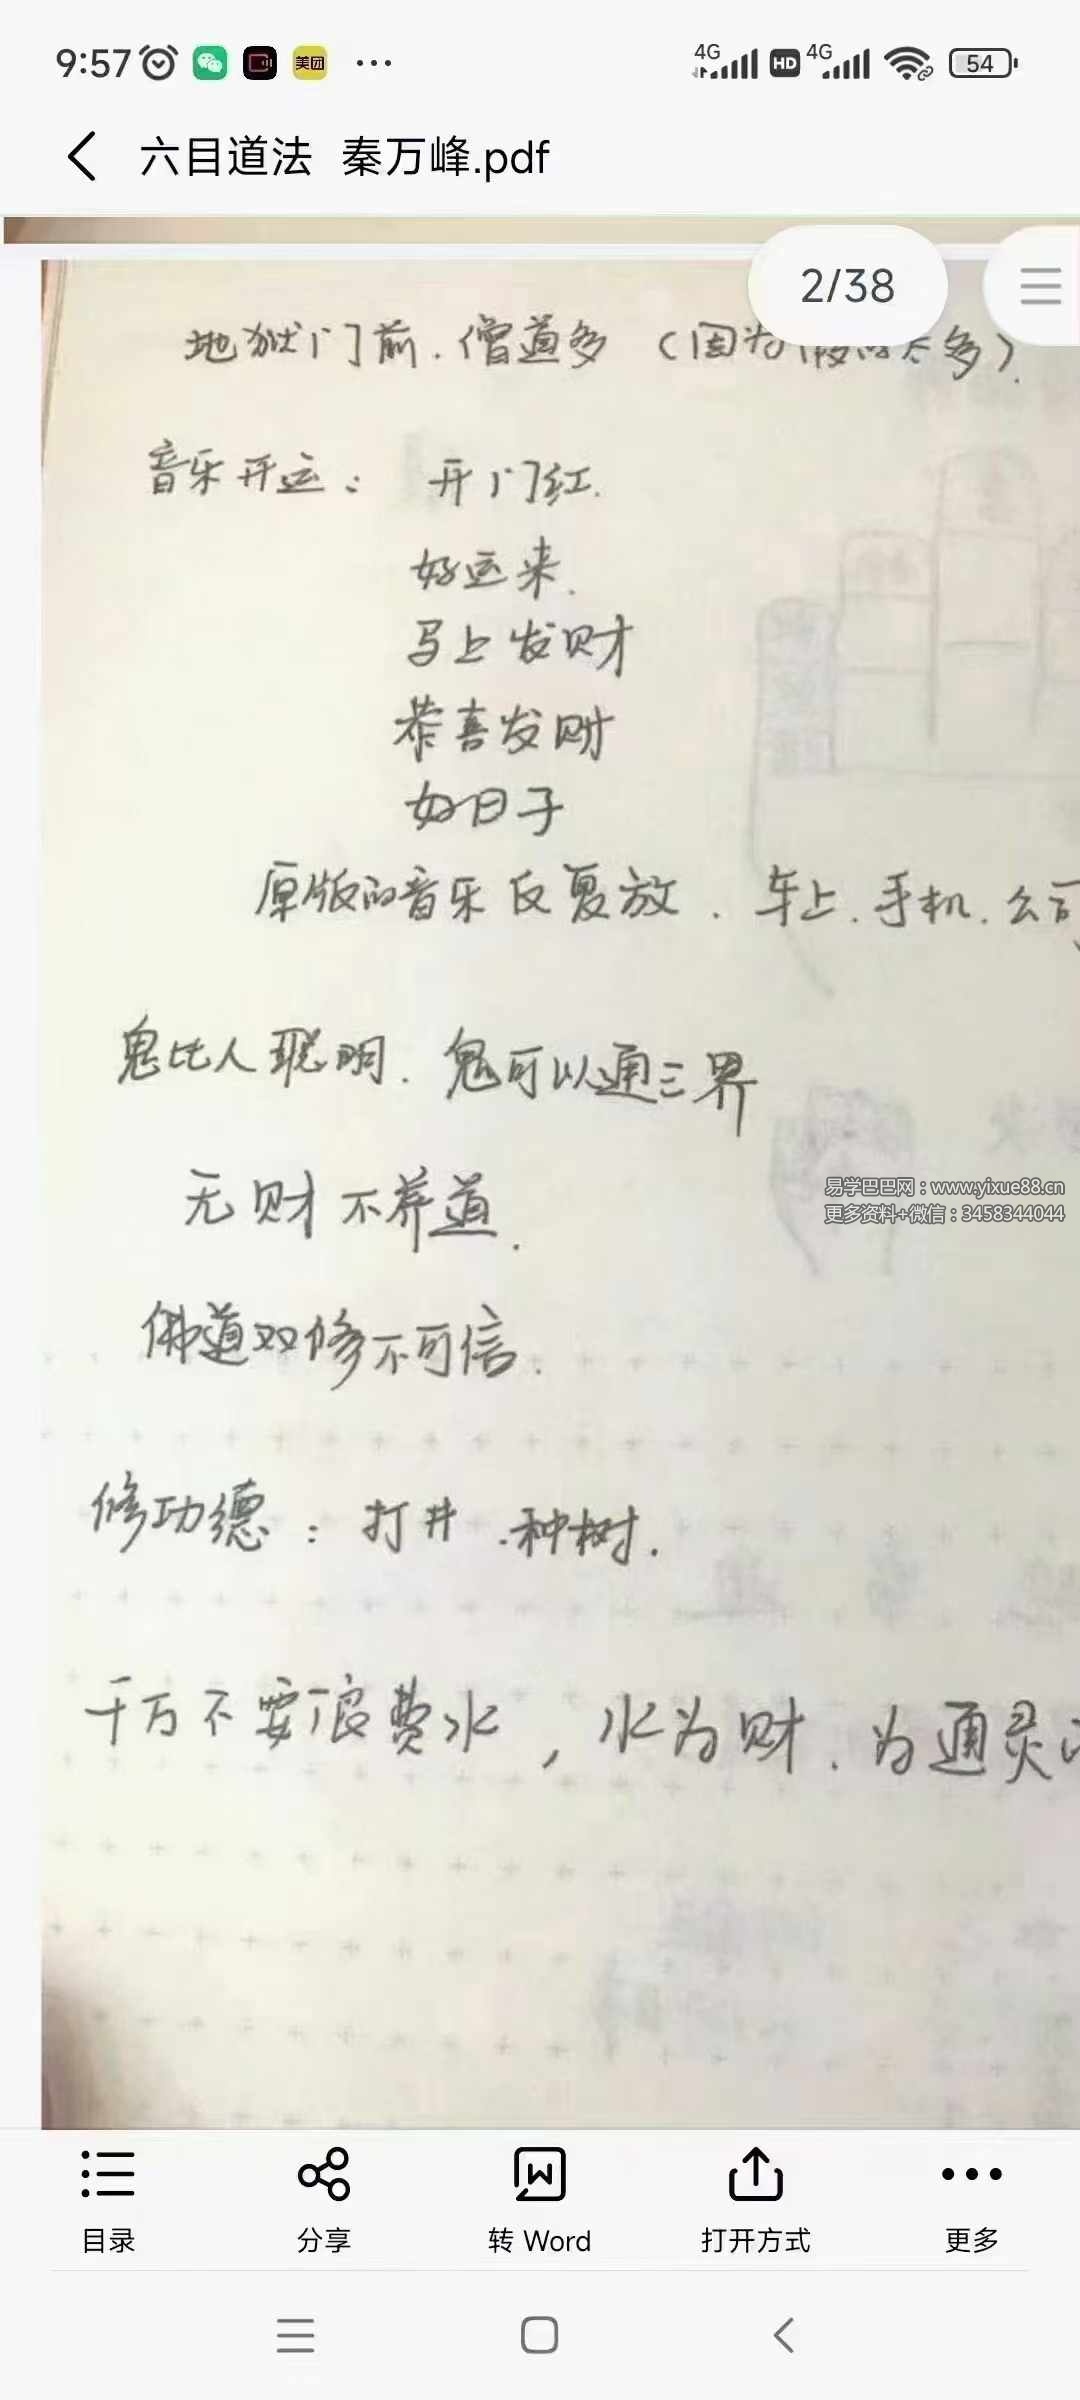 9:57 美团 4G HD 4G 54
六目道法 秦万峰.pdf
2/38
地狱门前.僧道多（因为假的太多）.
音乐开运： 开门红.
好运来.
马上发财
恭喜发财
好日子
原版的音乐反复放.车上.手机.公司
鬼比人聪明.鬼可以通三界
易学巴巴网：www.yixue88.cn
更多资料+微信：3458344044
无财不养道.
佛道双修不可信.
修功德：打井.种树.
千万不要浪费水，水为财.为通灵
目录 分享 转 Word 打开方式 更多